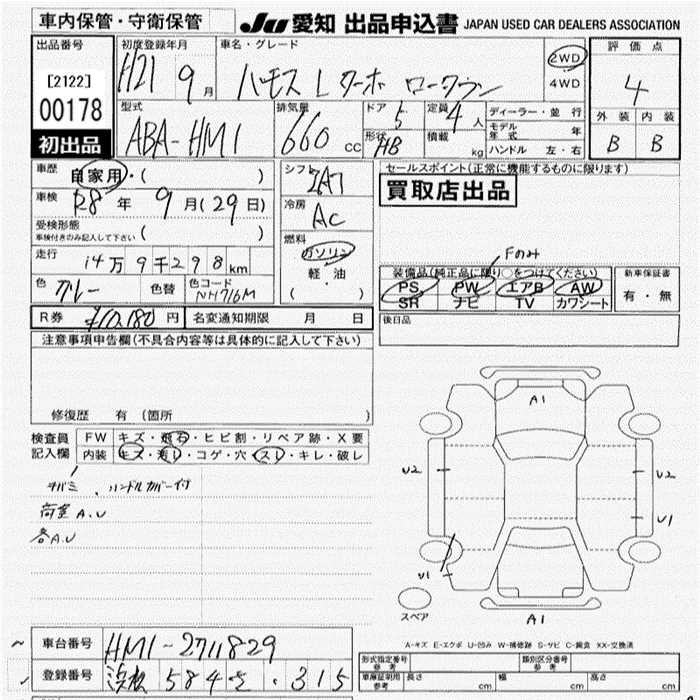 車内保管・守衛保管
JU 愛知 出品申込書 JAPAN USED CAR DEALERS ASSOCIATION
出品番号
[2122]
00178
初出品
初度登録年月
H21 9月
車名・グレード
ハモス L ターボ ロータウン
2WD
4WD
評価点
4
外装 内装
B B
型式
ABA-HM1
排気量
660 CC
ドア 5
形状 HB
定員 4人
積載 kg
ディーラー・並行
モデル年式 年
ハンドル 左・右
車歴
自家用・( )
車検
R8年 9月(29日)
受検形態
車検付きのみ記入して下さい ( )
走行
14万9千298km
色 グレー 色替 色コード NH716M
シフト
冷房
AC
燃料
ガソリン
軽油
( )
セールスポイント(正常に機能するものに限ります)
買取店出品
Fのみ
装備品(純正品に限り○をつけてください)
PS PW エアB AW
SR ナビ TV カワシート
新車保証書
有・無
R券 ¥10,180円 名変通知期限 月 日
後日品
注意事項申告欄(不具合内容等は具体的に記入して下さい)
修復歴 有 (箇所 )
検査員記入欄
FW キズ・飛石・ヒビ割・リペア跡・X要
内装 キズ・汚レ・コゲ・穴・スレ・キレ・破レ
ハンドルカバー付
荷室A.U
各A.U
A1
U2
U2
U1
U1
スペア
A1
A-キズ E-エクボ U-凹み W-補修跡 S-サビ C-腐食 XX-交換済
~ 車台番号 HM1-2711829
登録番号 浜松 584 さ・315
形式指定番号 参考
類別区分番号 参考
車庫証明用 参考
長さ cm 幅 cm 高さ cm